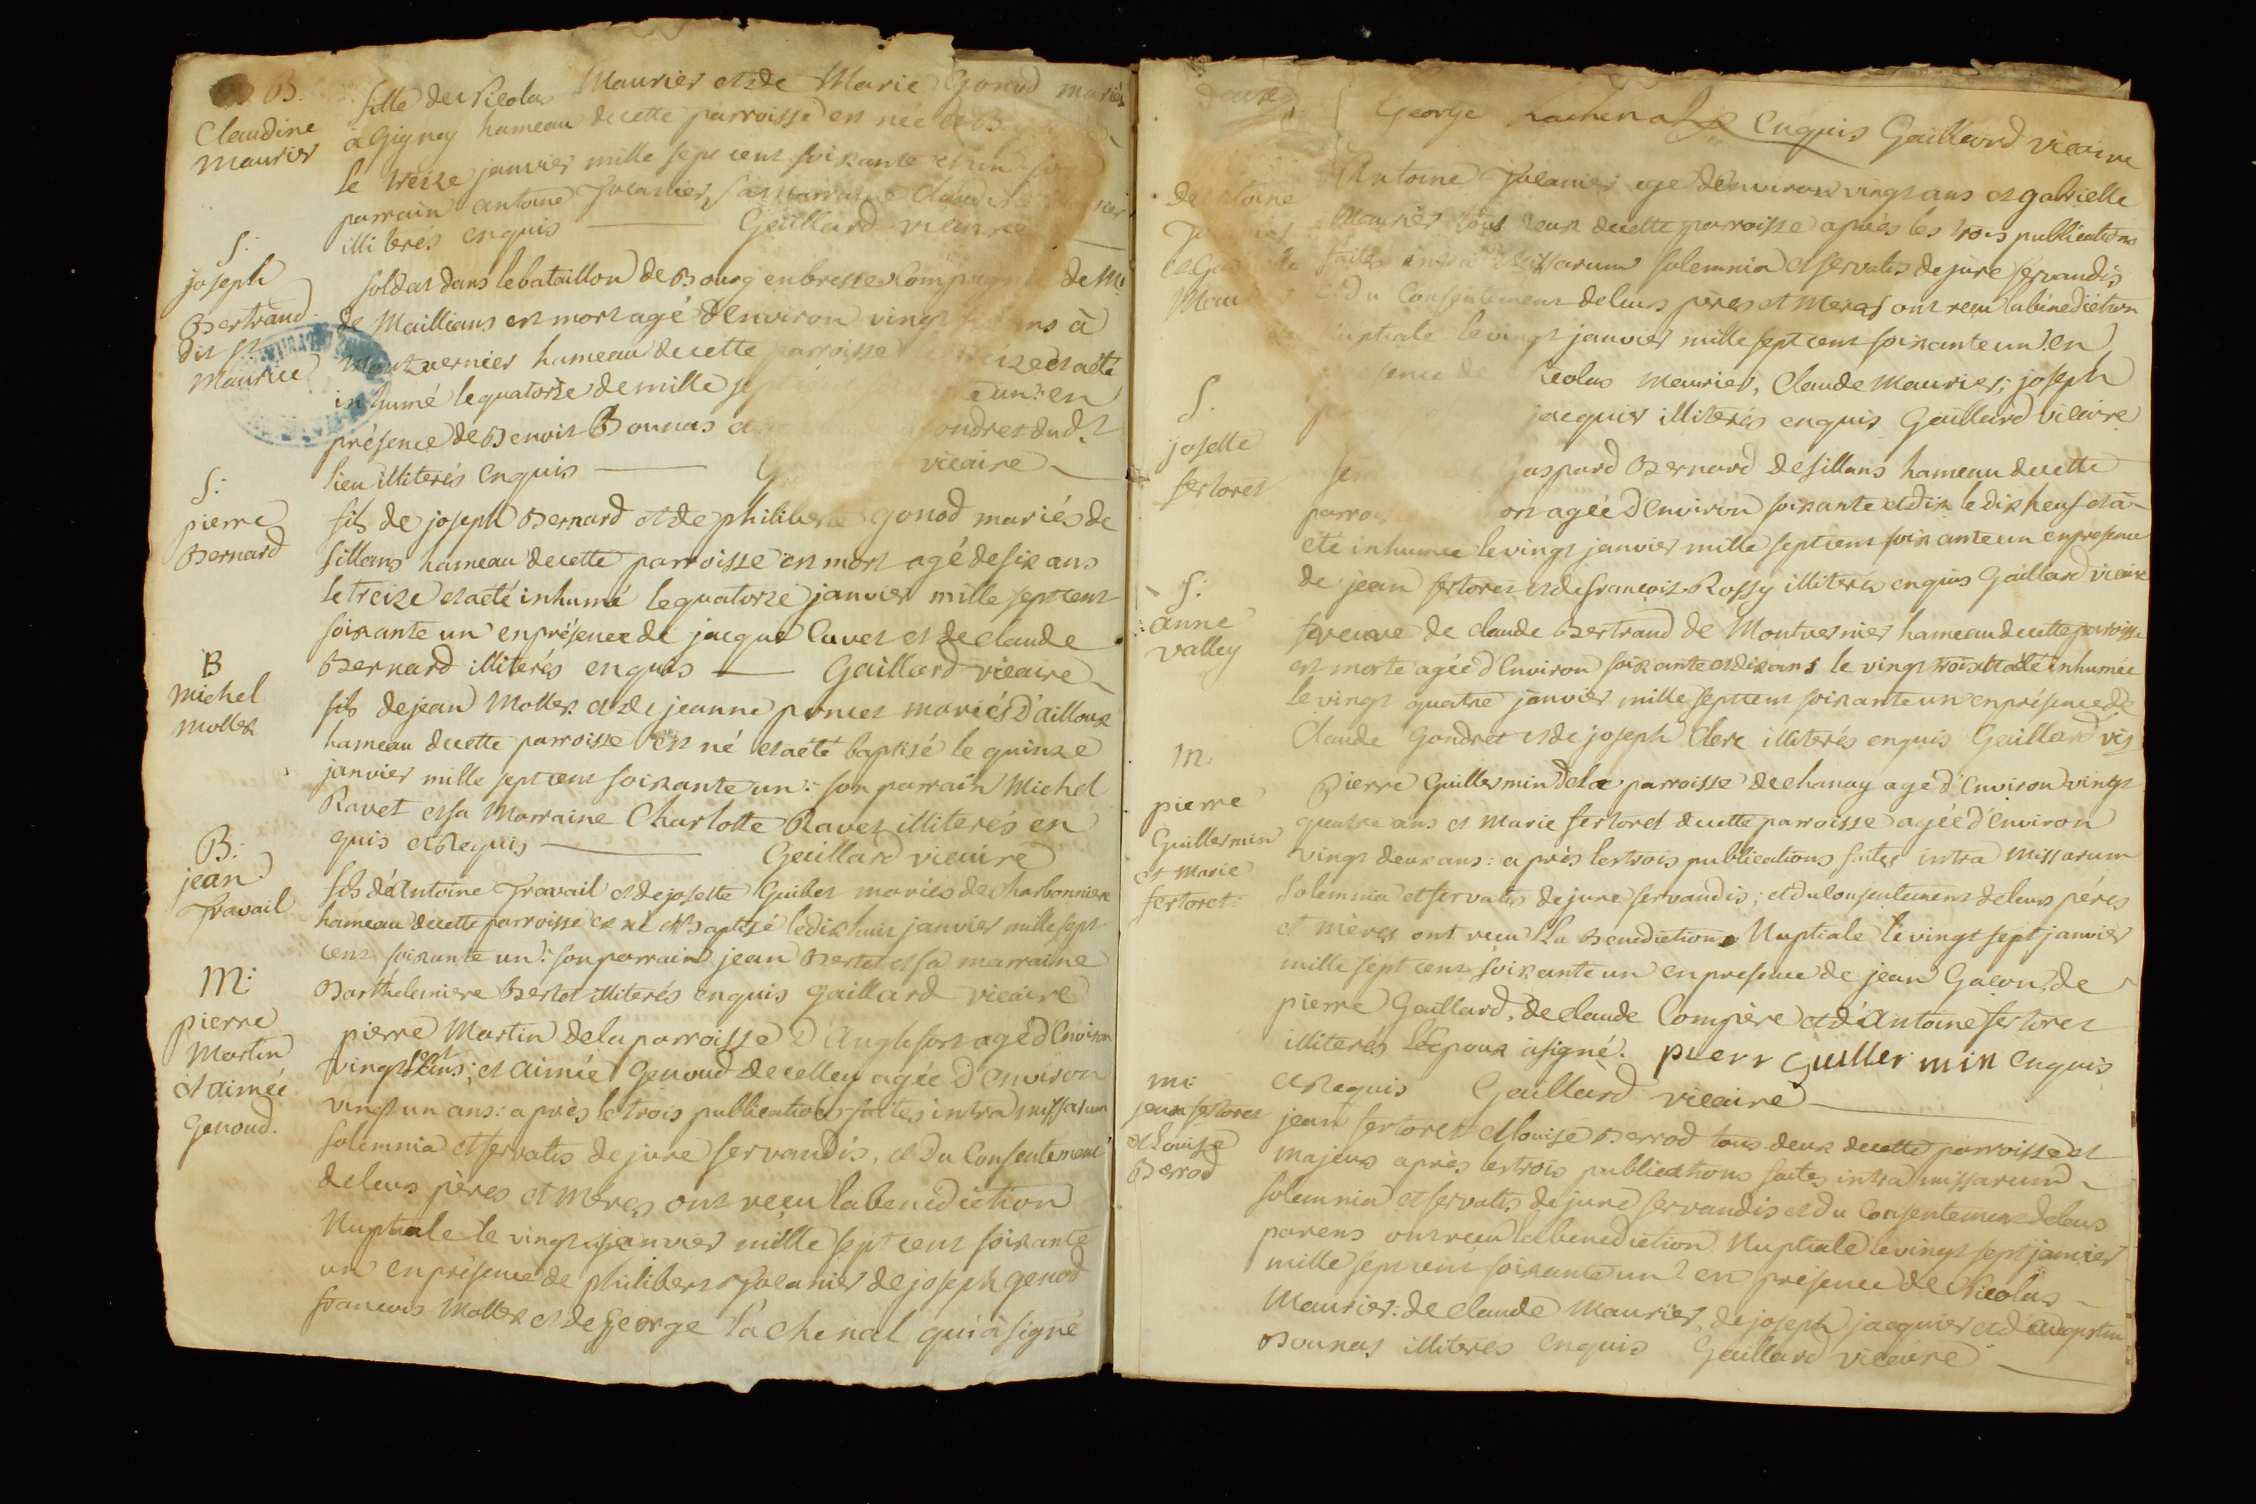 B.
Claudine
Maurier
fille de Nicolas Maurier et de Marie Gonod mariés
à Gigney hameau de cette parroisse est née
le treize janvier mille sept cent soixante et un
parrain antoine Jolanier, sa marraine
illiterés enquis Gaillard vicaire
S:
joseph
Bertrand
dit St
Maurice
soldat dans le bataillon de Bourg en bresse Compagnie de Mr
de Maillians est mort agé d'environ vingt ans à
Montvernier hameau de cette parroisse et a eté
inhumé le quatorze de mille un: en
présence de Benoit Bonnas dud.t
lieu illiterés enquis vicaire
S:
pierre
Bernard
fils de joseph Bernard et de philiberte gonod mariés de
Sillans hameau de cette parroisse est mort agé de six ans
le treize et a eté inhumé le quatorze janvier mille sept cent
soixante un en présence de jacque Cuvet et de claude
Bernard illiterés enquis Gaillard vicaire
B
michel
mollex
fils de jean Mollex et de jeanne poncet mariés d'ailloux
hameau de cette parroisse est né et a eté baptisé le quinze
janvier mille sept cent soixante un: son parrain Michel
Ravet et sa Marraine Charlotte Ravet illiterés en
quis et Requis Gaillard vicaire
B:
jean
Travail
fils d'Antoine Travail et de josette Guibet mariés de charbonniere
hameau de cette parroisse est né et Baptisé le dix huit janvier mille sept
cent soixante un: son parrain jean Bertet et sa marraine
Barthelemiere Bertet illiterés enquis gaillard vicaire
M:
pierre
Martin
et aimée
Genoud.
pierre Martin de la parroisse d'Anglefort agé d'Environ
vingt sept ans; et aimée Genoud de celley agée d'environ
vingt un ans: après le trois publications faites intra missarum
solemnia et servatis de jure servandis, et du Consentement
de leurs pères et Mères ont reçu la benediction
Nuptiale le vingt janvier mille sept cent soixante
un en présence de philibert Jolanier de joseph genod
francois Mollex et de George Lachenal qui à signé
deux
George Lachenal Enquis Gaillard vicaire
Antoine
Antoine Jolanier agé d'environ vingt ans et gabrielle
Maurier tous deux de cette parroisse après les trois publications
faites intra Missarum solemnia et servatis de jure servandis
et du Consentement de leurs pères et Meres ont reçu la bénédiction
nuptiale le vingt janvier mille sept cent soixante un: en
présence de Nicolas Maurier, Claude Maurier; joseph
jacquier illiterés enquis Gaillard Vicaire
S.
josette
fertoret
gaspard Bernard de Sillans hameau de cette
parroisse agée d'Environ soixante et dix le dix neuf et à
eté inhumée le vingt janvier mille sept cent soixante un en presence
de jean fertoret et de françois Rossy illiterés enquis Gaillard vicaire
S:
anne
valley
veuve de claude Bertrand de Montvernier hameau de cette parroisse
est morte agée d'Environ soixante et dix ans le vingt trois et à eté inhumée
le vingt quatre janvier mille sept cent soixante un en présence de
Claude Gondret et de joseph Clerc illiterés enquis Gaillard vic
m:
pierre
Guillermin
et Marie
fertoret
Pierre Guillermin de la parroisse de chanay agé d'Environ vingt
quatre ans et Marie fertoret de cette parroisse agée d'Environ
vingt deux ans: après les trois publications faites intra Missarum
solemnia et servatis de jure servandis; et du Consentement de leurs pères
et mères ont reçu La Benediction Nuptiale le vingt sept janvier
mille sept cent soixante un en presence de jean Gaçon, de
pierre Gaillard, de claude Compère et d'Antoine fertoret
illiterés L'époux à signé. pierr guillermin Enquis
et Requis Gaillard vicaire
m:
jean fertoret
et Louise
Berrod
jean fertoret et louise Berrod tous deux de cette parroisse et
majeurs après les trois publications faites intra missarum
solemnia et servatis de jure servandis et du Consentement de leurs
parens ont reçu la benediction Nuptiale le vingt sept janvier
mille sept cent soixante un: en présence de Nicolas
Maurier: de claude Maurier, de joseph jacquier et d'augustin
Bonnas illiterés Enquis Gaillard vicaire